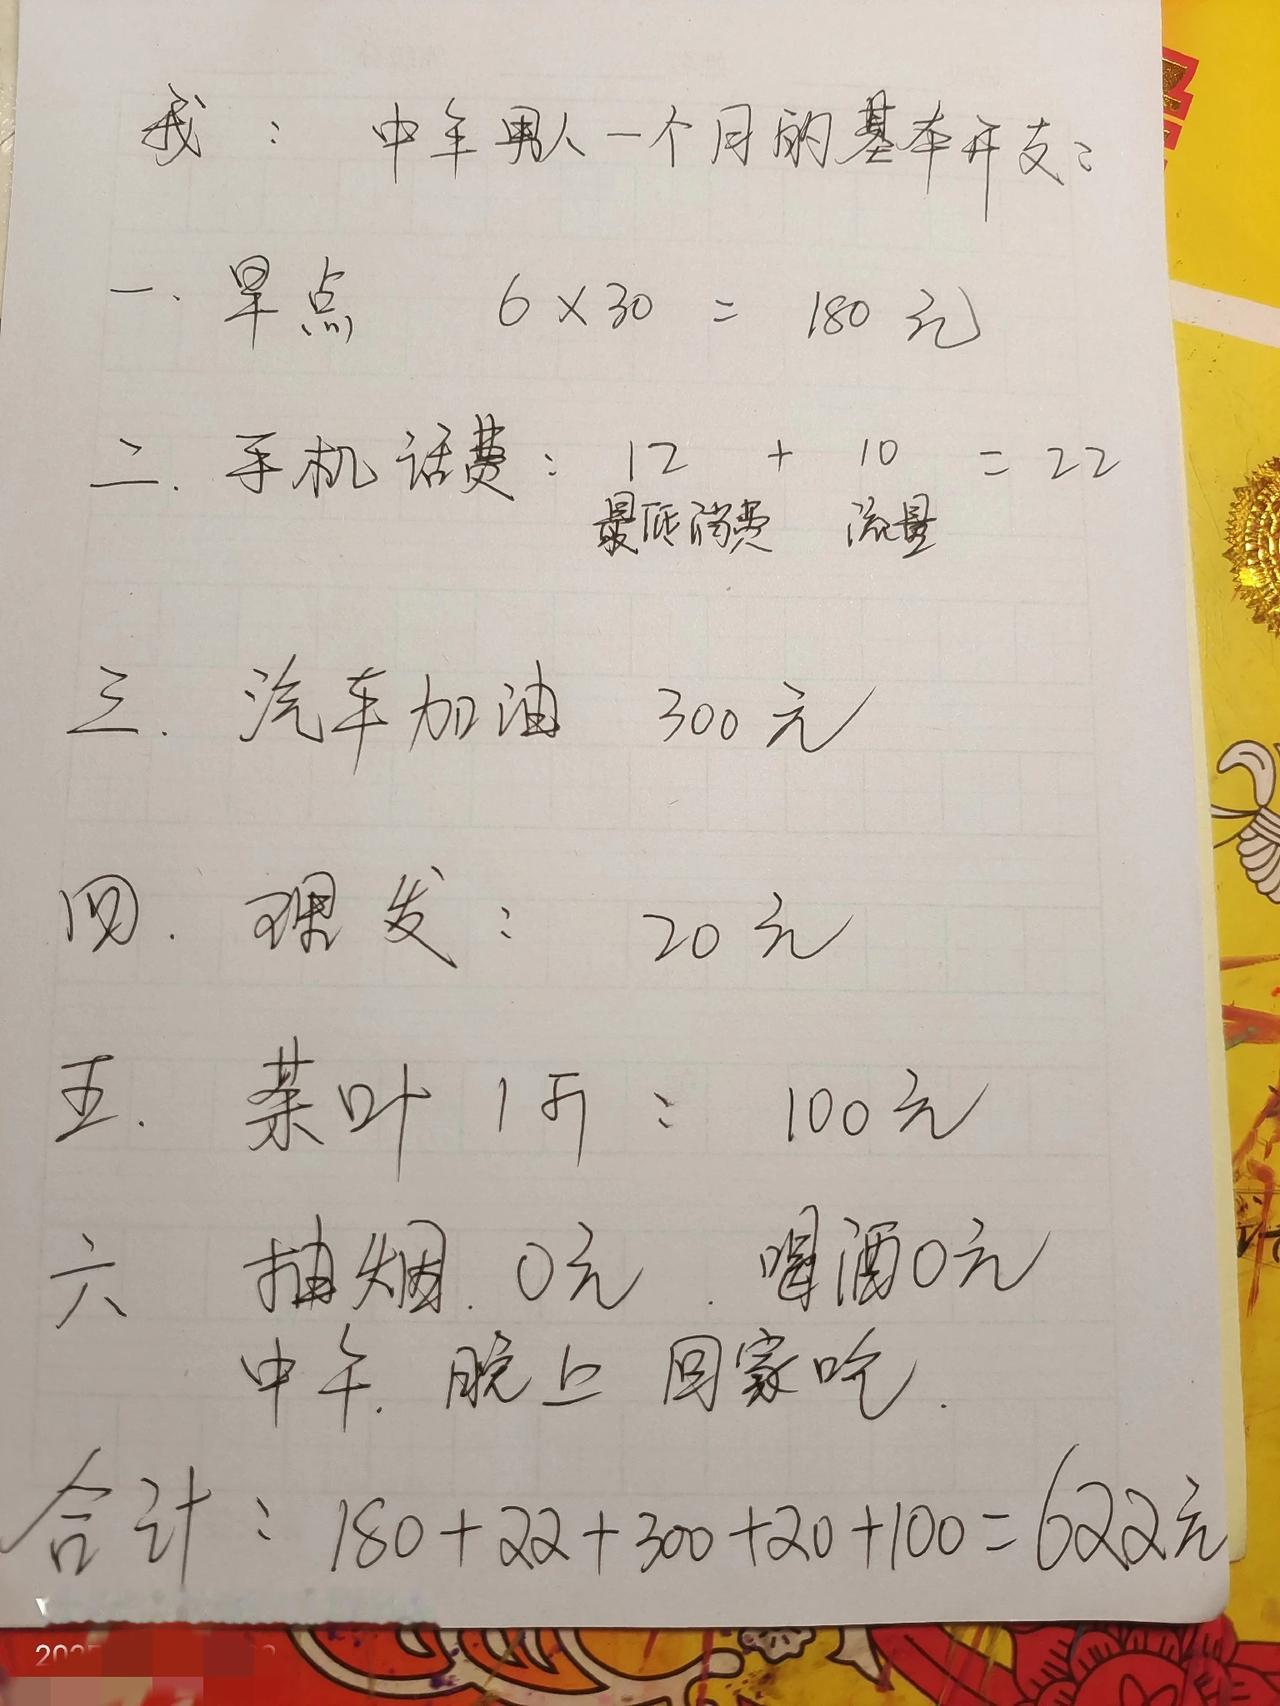 我：中年男人一个月的基本开支：
一.早点 6×30=180元
二.手机话费：12+10=22
最低消费 流量
三.汽车加油 300元
四.理发：20元
五.茶叶1斤：100元
六 抽烟.0元.喝酒0元
中午.晚上回家吃.
合计：180+22+300+20+100=622元